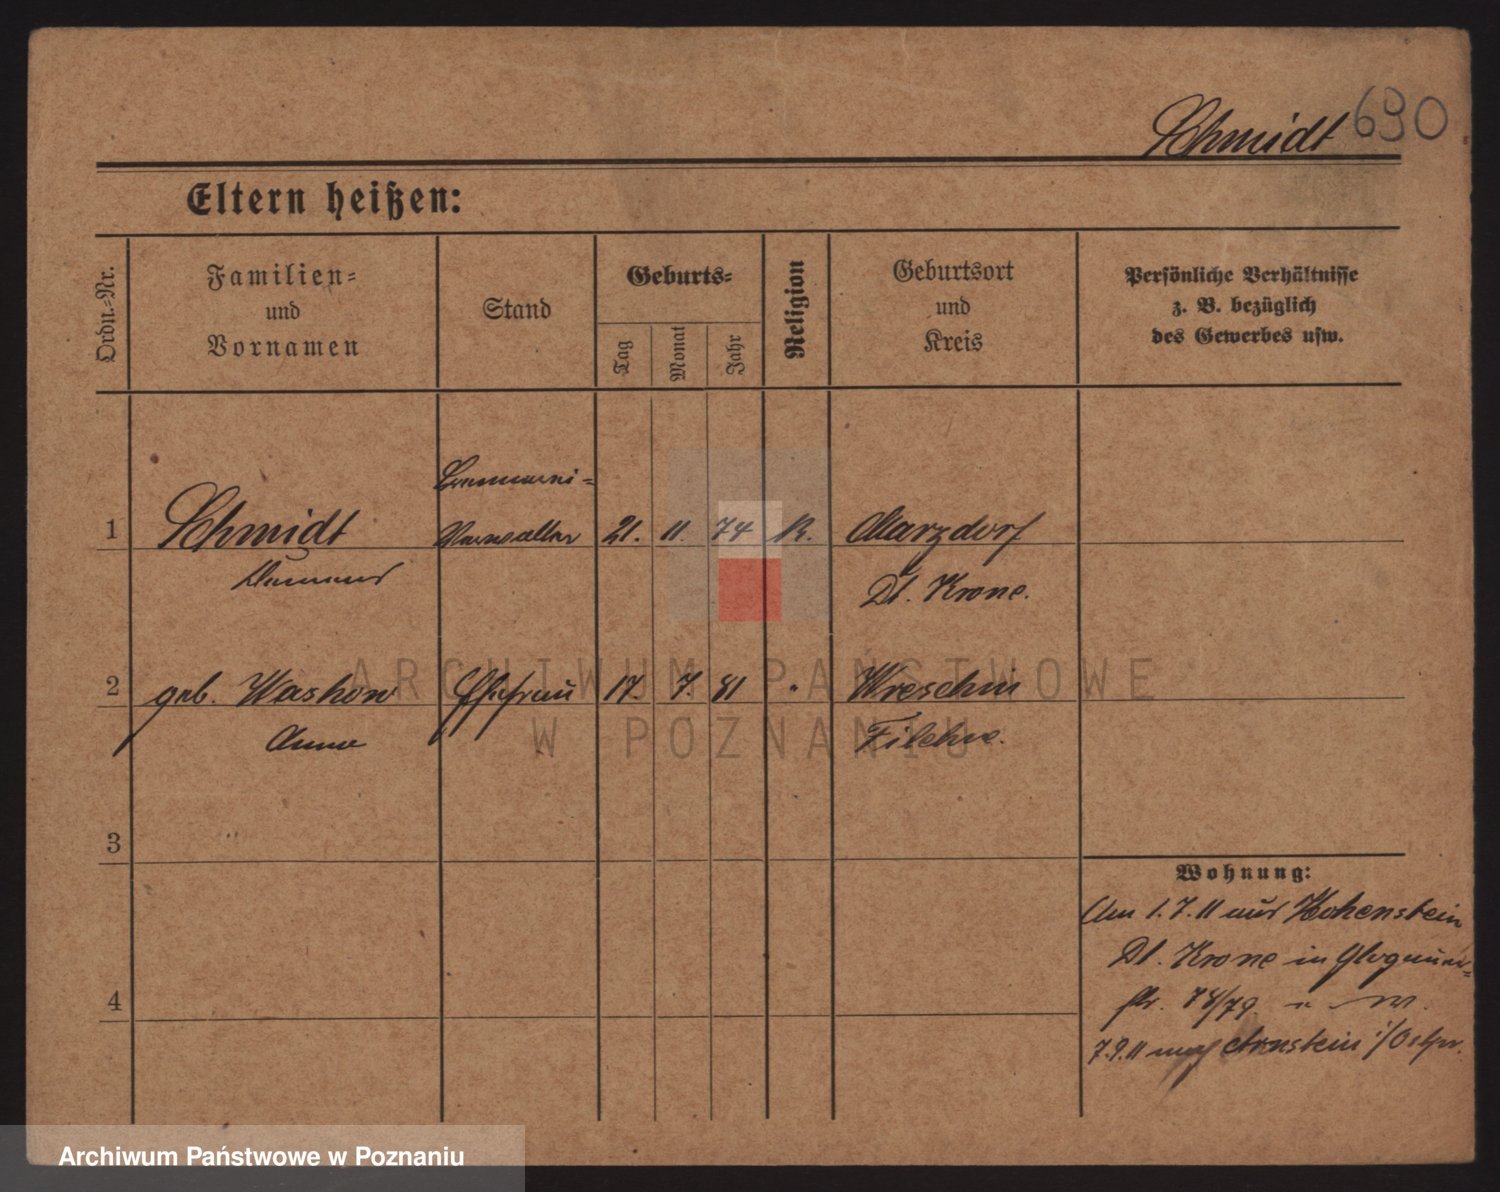 Schmidt 690
Eltern heißen:
Ordn.-Nr.
Familien-
und
Vornamen
Stand
Geburts-
Tag
Monat
Jahr
Religion
Geburtsort
und
Kreis
Persönliche Verhältnisse
z. B. bezüglich
des Gewerbes usw.
1 Schmidt Verwalter 21. 11. 74 K. Marzdorf
Dt. Krone.
2 geb. Waskow Ehefrau 17. 7. 81 " Wreschin
Anna Filehne.
3
4
Wohnung:
Am 1.7.11 aus Hohenstein
Dt. Krone in Glogauer-
str. 78/79.
7.9.11 nach Arnstein i/Ostpr.
ARCHIWUM PAŃSTWOWE
W POZNANIU
Archiwum Państwowe w Poznaniu